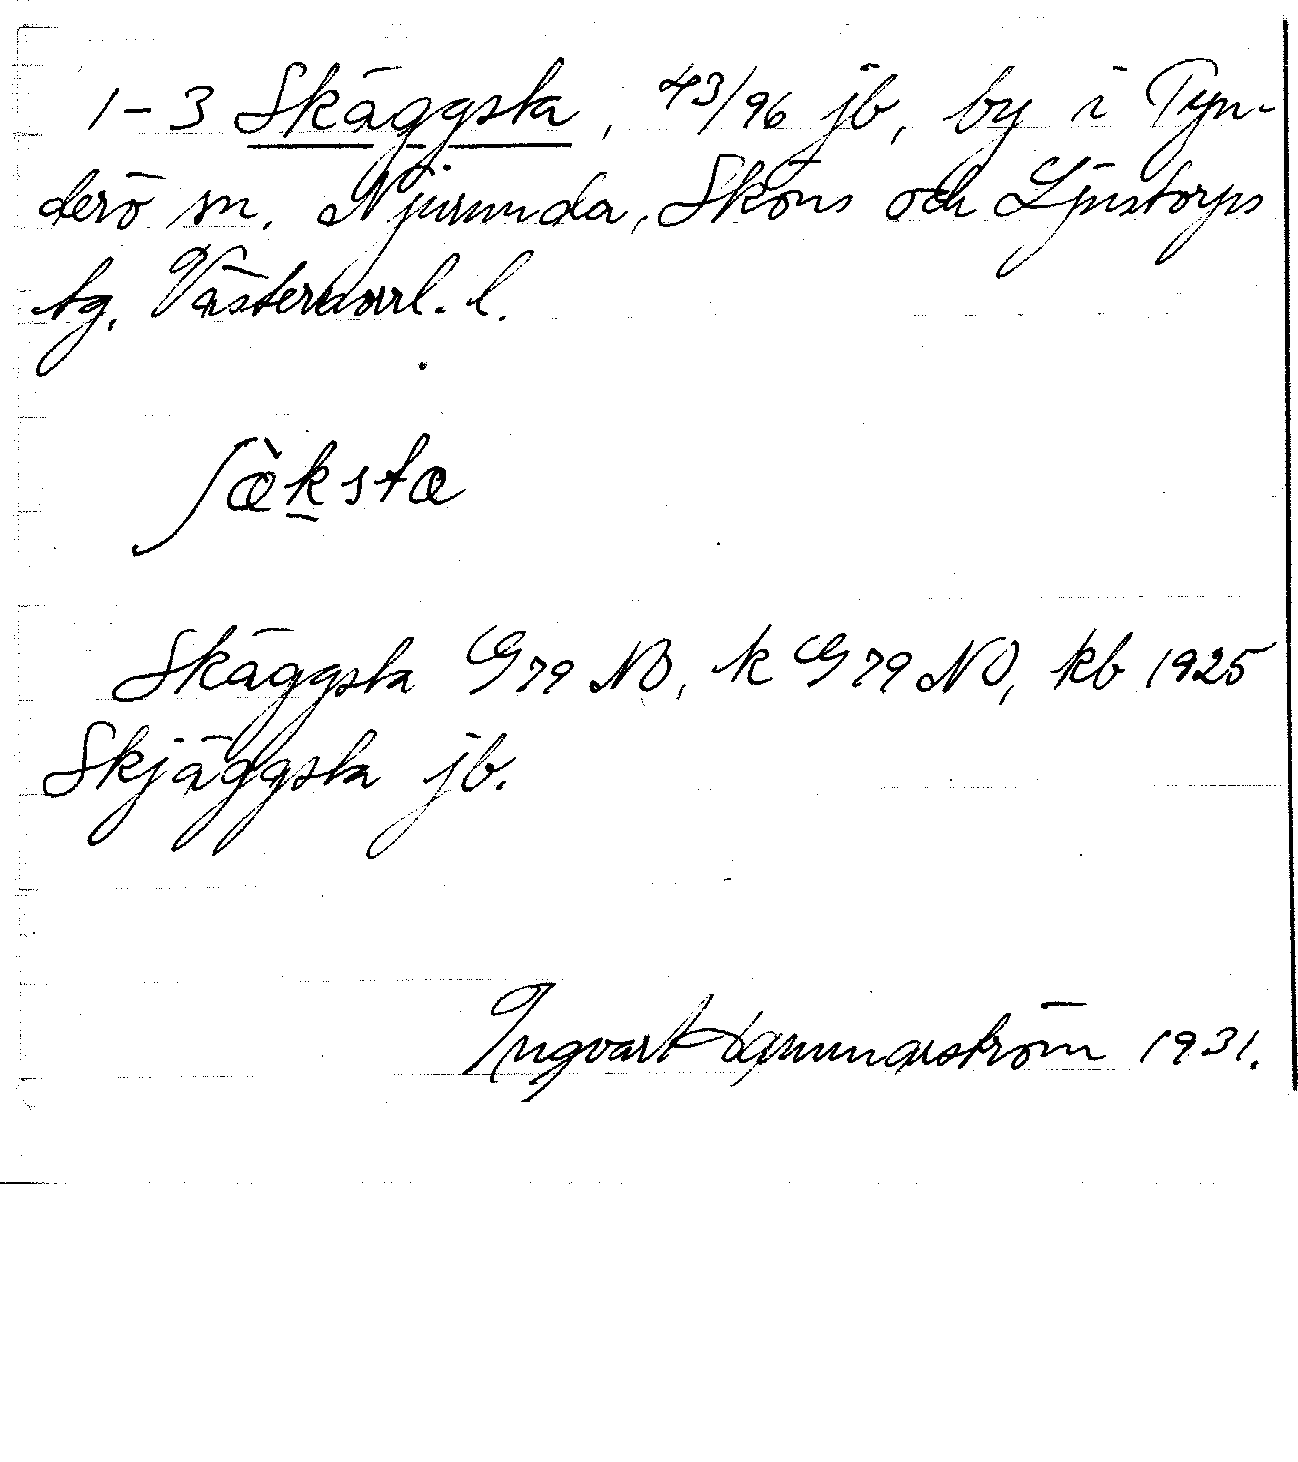 1-3 Skäggsta, 43/96 jb, by i Tyn-
derö sn. Njurunda, Sköns och Ljustorps
tg, Västernorrl. l.
ʃæ̀kstɑ
Skäggsta G79 NO, k G79 NO, kb 1925
Skjäggsta jb.
Ingvart Hammarström 1931.